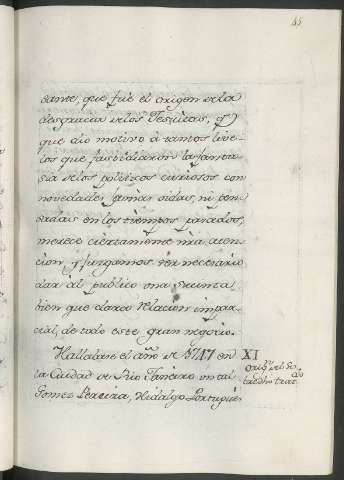 45
sante, que fué el origen de la
desgracia de los Jesuitas, y
que dio motivo à tantos libe-
los que fastidiaron la fanta-
sia de los politicos curiosos con
novedades jamàs oidas, ni pen-
sadas en los tiempos pasados,
merece ciertamente nra. aten-
cion, y juzgamos ser necesario
dar al publico una sucinta
bien que clara relacion impar-
cial, de todo este gran negocio.
Hallabase el año de 1747 en
la Ciudad de Rio Janeiro un tal
Gomez Pereira, Hidalgo Portugués
XI